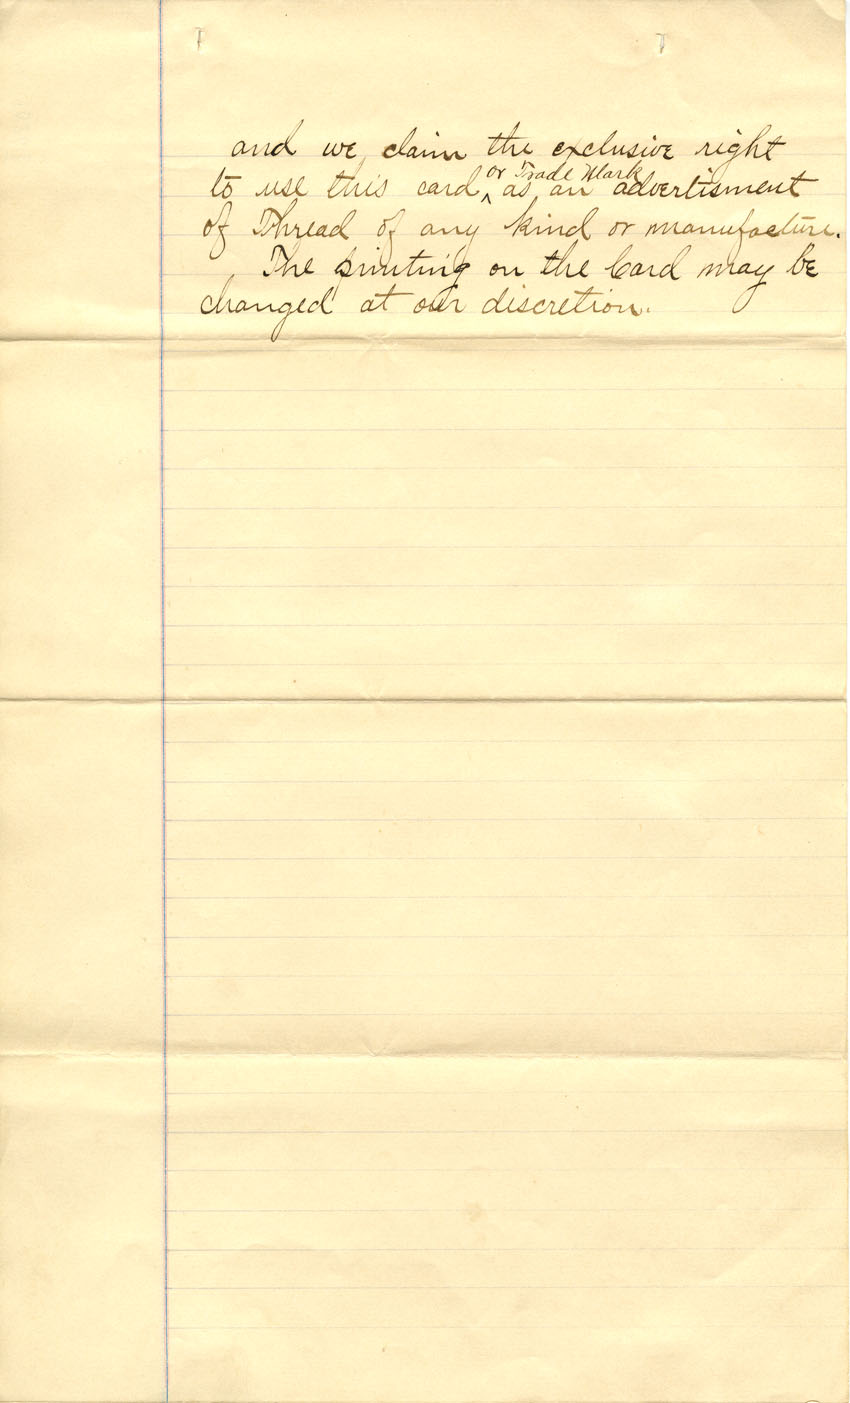 and we, claim the exclusive right
or Trade Mark
to use this card ^ as an advertisment
of Thread of any kind or manufacture.
The printing on the Card may be
changed at our discretion.